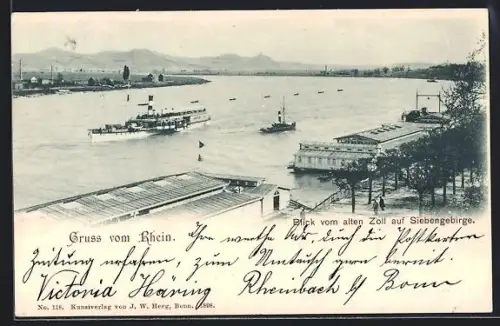 Blick vom alten Zoll auf Siebengebirge.
Gruss vom Rhein.
Ihre werthe Adr. durch die Postkarten
Zeitung erfahren, zum Umtausch gern bereit.
Victoria Häring Rheinbach b/ Bonn
No. 218. Kunstverlag von J. W. Herg, Bonn. 1898.